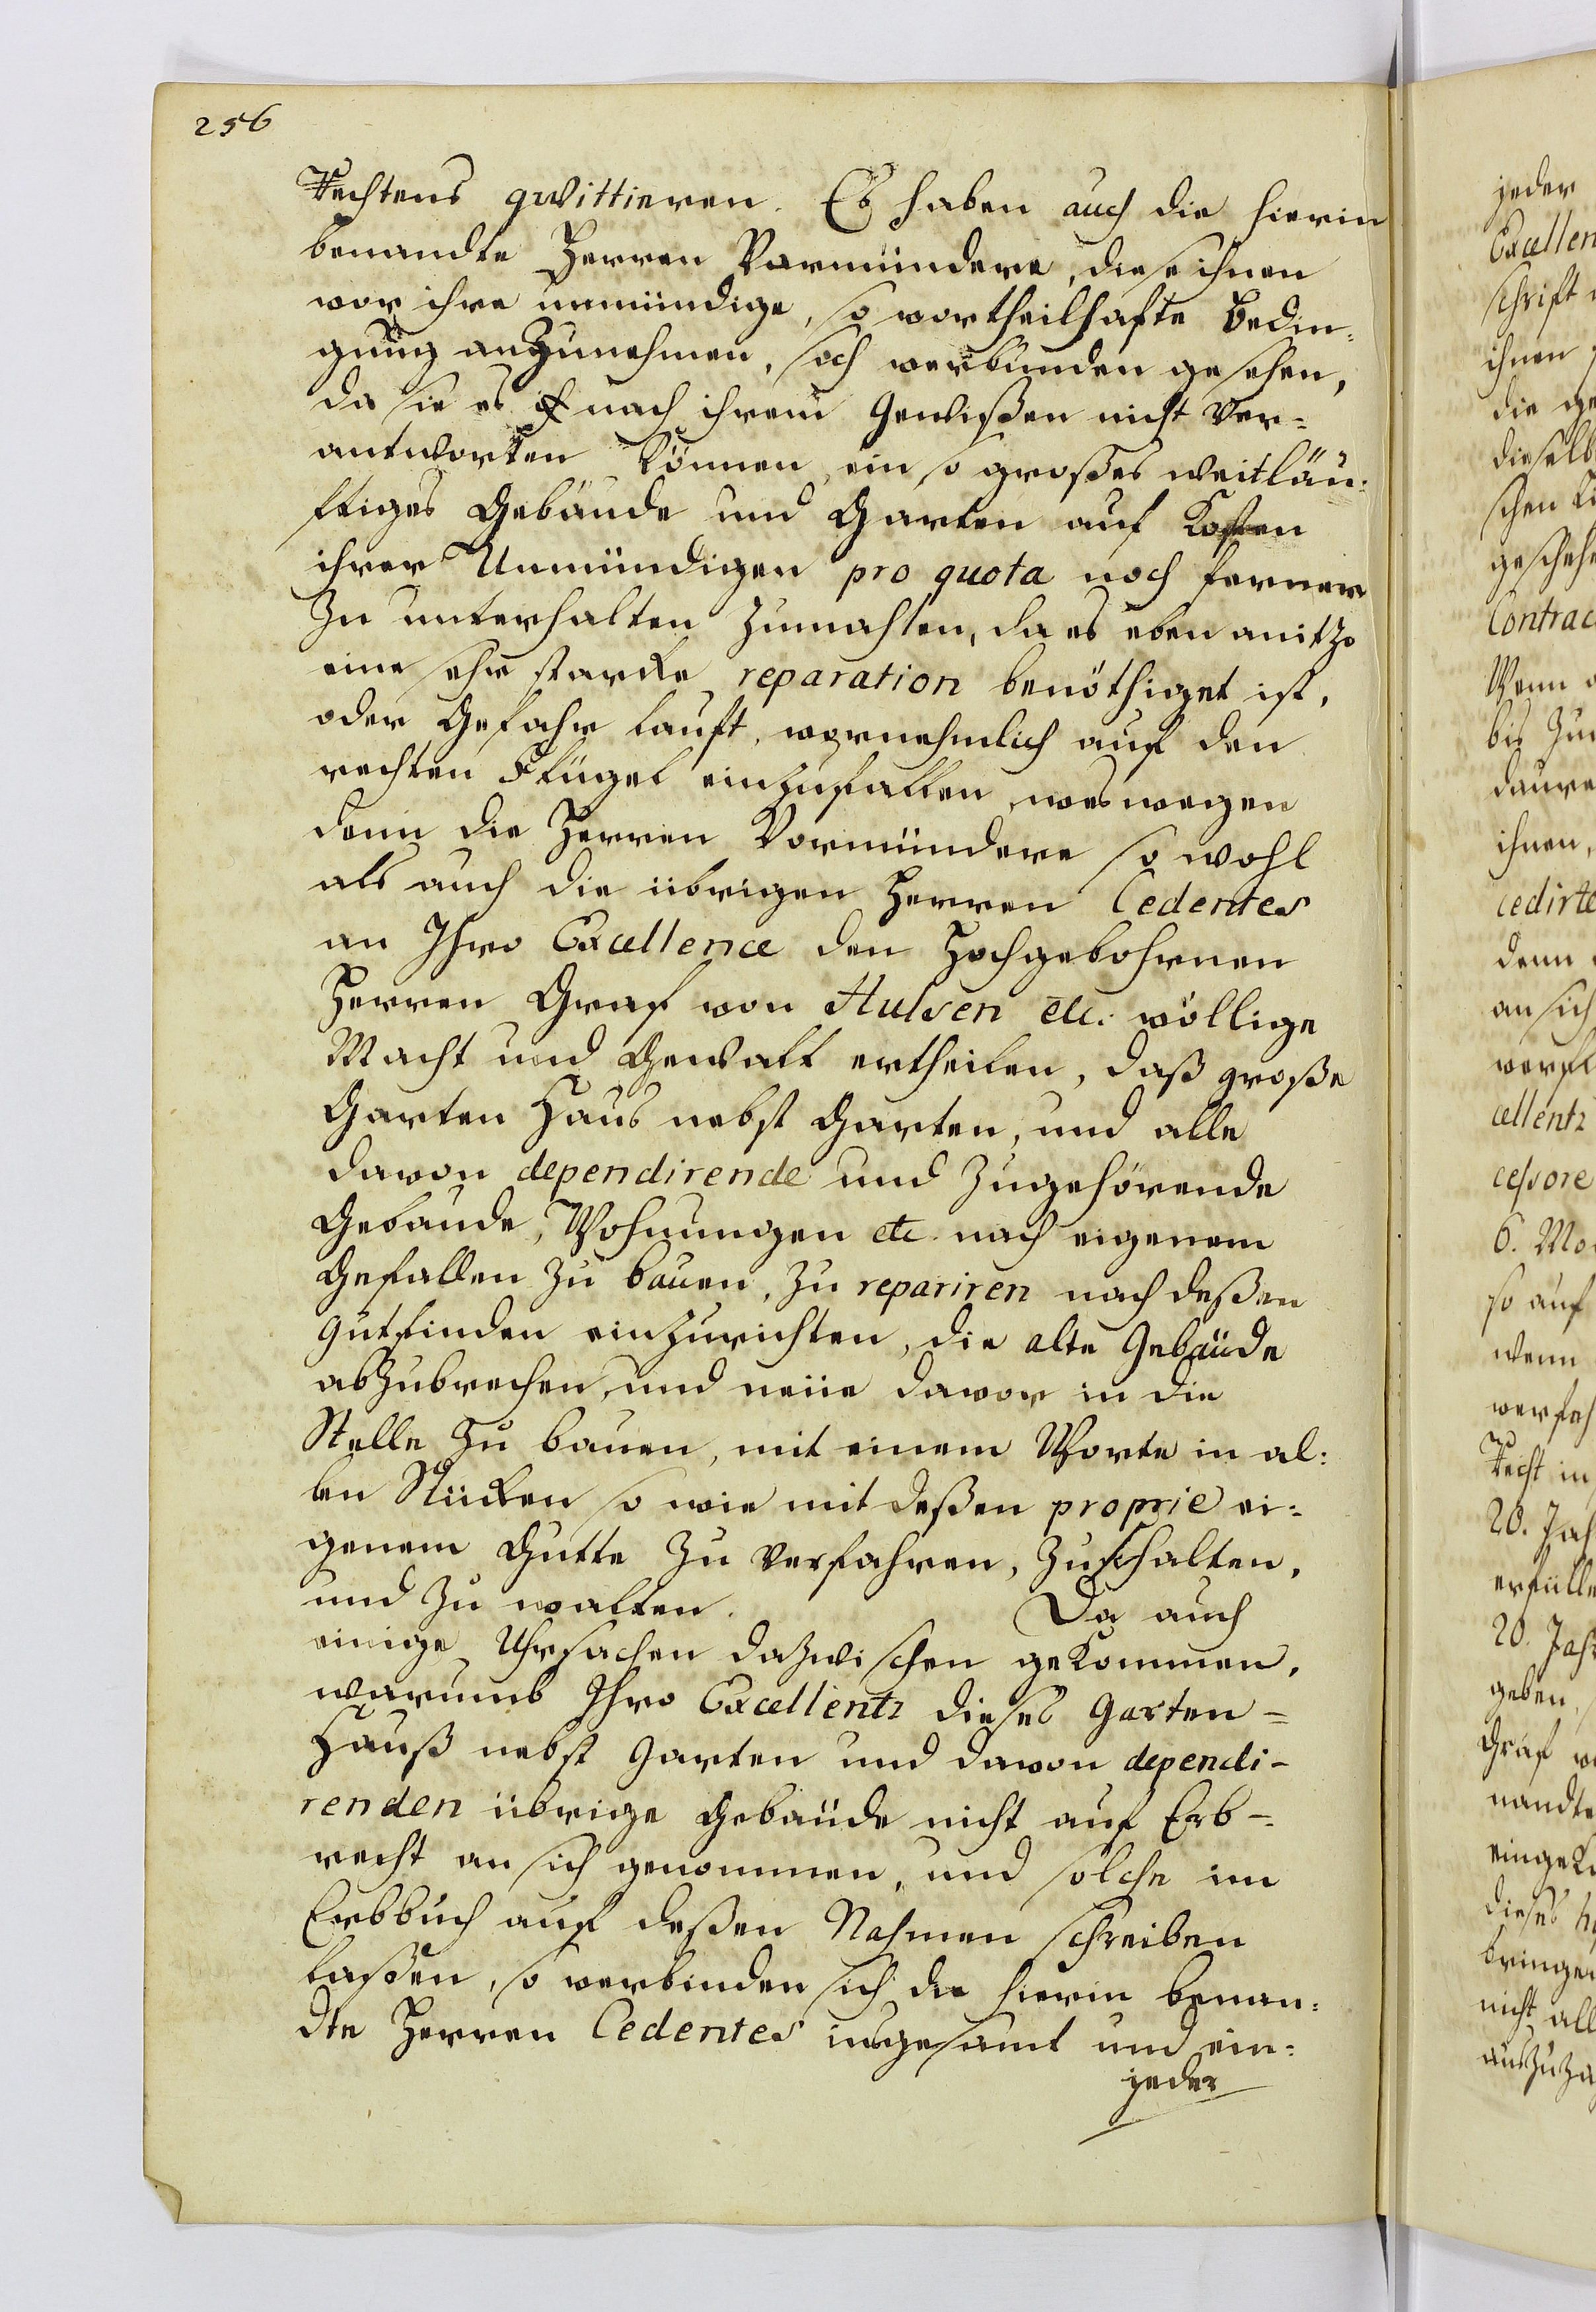 256
Rechtens qwittieren. Es haben auch die hierin
benandte Herren Vormündere, diese ihnen
vor ihre unmündige, so vortheilhafte Bedin:
gung anzunehmen, sich verbunden gesehen,
da sie es nach ihrem Gewißen nicht Ver=
antworten können, ein so großes weitläu:
ftiges Gebäude und Garten auf Kosten
ihrer Unmündigen pro quota noch ferner
Zu unterhalten zumahlen, da es eben anitzo
eine sehr starke reparation benöthiget ist,
oder Gefahr lauft, vornehmlich auf den
rechten Flügel einzufallen, weswegen
denn die Herren Vormündere so wohl
als auch die übrigen Herren Cedentes
an Ihro Excellence den Hochgebohrnen
Herren Graf von Hulsen etc: völlige
Macht und Gewalt ertheilen, daß große
Garten Haus nebst Garten, und alle
davon dependirende und Zugehörende
Gebaude, Wohnungen etc. nach eigenem
Gefallen zu bauen, zu repariren nach deßen
Gutfinden einzurichten, die alte Gebäude
abzubrechen, und neüe davor in die
Stelle zu bauen, mit einem Worte in al:
len Stücken so wie mit deßen proprie ei:
genem Gutte zu Verfahren, zu schalten,
und zu walten. Da auch
einige Uhrsachen dazwischen gekommen,
warumb Ihro Excellentz dieses Garten=
Hauß nebst Garten und davon dependi-
renden übrige Gebäude nicht auf Erb=
recht an sich genommen, und solche im
Erbbuch auf deßen Nahmen schreiben
laßen, so verbinden sich die hierin benan:
dte Herren Cedentes insgesamt und ein:
jeder
jeder
Excellen
schrift
ihnen
die ge
dieselb
schen
gescheh
Contrac
Wenn
bis Zu
daure
ihnen,
cedirte
denn
an sich
verfl
cellentz
cessore
6. Mo
so auf
wenn
verfah
Recht in
20. Jah
erfülle
20. Jahr
geben
Graf v
nandte
eingeko
dieses
bringen
nicht all
auszuza